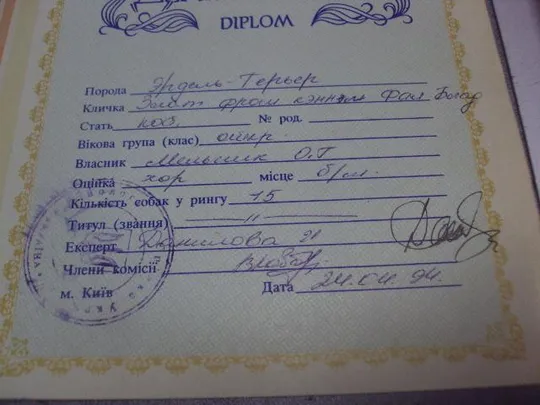 DIPLOM
Порода Эрдель-Терьер
Кличка Золат фром кэннэл Фол
Стать
№ род.
Вікова група (клас) откр.
Власник Мельник О.Г
Оцінка хор місце б/м.
Кількість собак у рингу 15
Титул (звання) — " —
Експерт Данилова И
Члени комісії
м. Київ Дата 24.04.94.